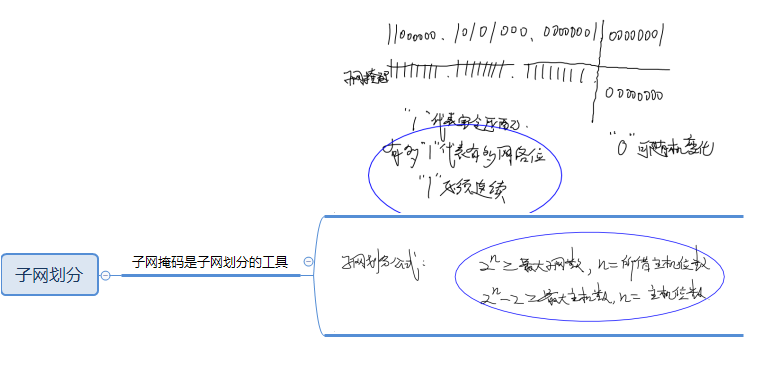 11000000. 10101000. 00000001 00000001
子网掩码 11111111. 11111111. 11111111. 00000000
"1"代表完全匹配.
有多"1"代表有多网络位
"1"必须连续
"0"可随机变化
子网划分
子网掩码是子网划分的工具
子网划分公式:
2ⁿ≥最大子网数, n=所借主机位数
2ⁿ-2≥最大主机数, n=主机位数